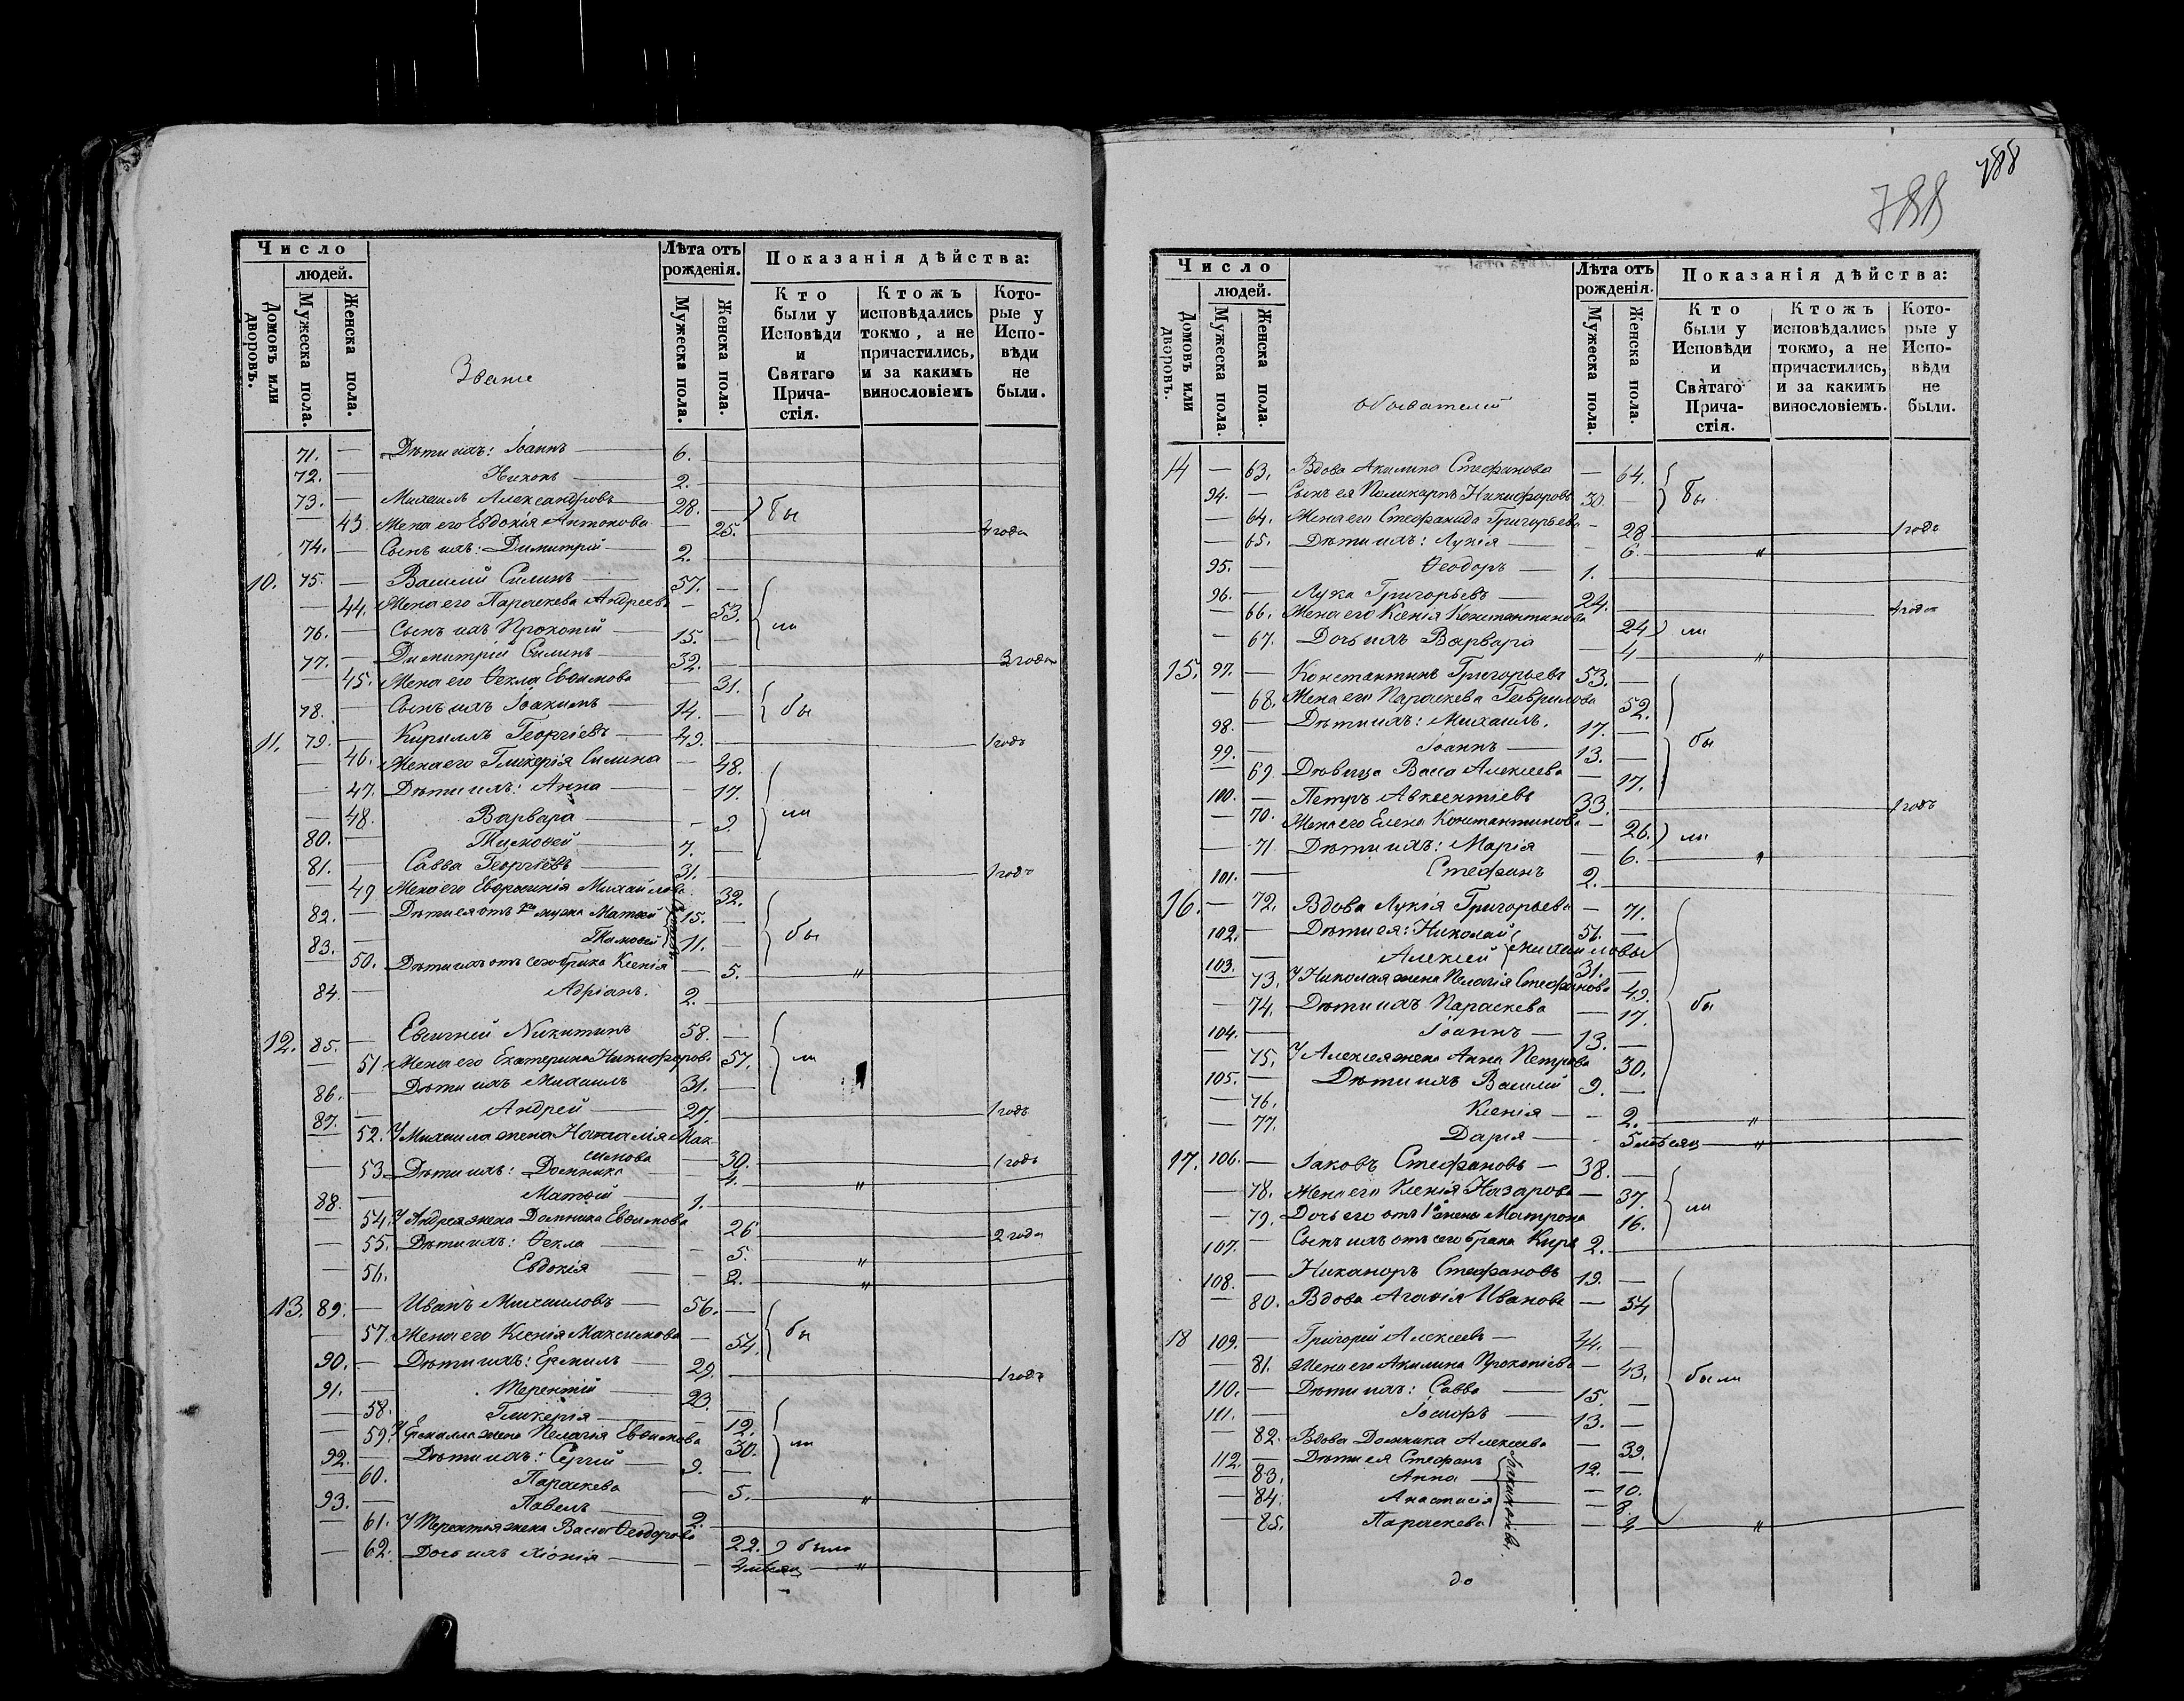 Число
людей.
Домовъ или дворовъ.
Мужеска пола.
Женска пола.
Званіе
Лѣта отъ рожденія.
Мужеска пола.
Женска пола.
Показанія дѣйства:
Кто были у Исповѣди и Святаго Причастія.
Ктожъ исповѣдались токмо, а не причастились, и за какимъ винословіемъ
Которые у Исповѣди не были.
71. — Дѣти ихъ: Іоаннъ — 6.
72. Никонъ — 2.
73. — Михаилъ Александровъ — 28. — } бы
— 43. Жена его Евдокія Антонова — 25. 4 года
74. — Сынъ ихъ: Димитрій — 2.
10. 75. — Василій Силинъ — 57. —
— 44. Жена его Параскева Андреева — 53.
76. — Сынъ ихъ Прокопій — 15. — } ли
77. — Димитрій Силинъ — 32. 3 года
— 45. Жена его Ѳекла Евѳимова — 31.
78. — Сынъ ихъ Іоакимъ — 14. — } бы
11. 79. — Кириллъ Георгіевъ — 49. 1 годъ
— 46. Жена его Гликерія Силина — 48.
— 47. Дѣти ихъ: Анна — 17.
— 48. Варвара — 9. } ли
80. — Тимоѳей — 7. —
81. — Савва Георгіевъ — 31. 1 годъ
— 49 Жена его Евфросинія Михайлова 32.
82. — Дѣти ея отъ 1го мужа Матѳей 15. —
83. — Тимоѳей 11. — } бы
— 50. Дѣти ихъ отъ сего брака Ксенія — 5. "
84. — Адріанъ. 2.
12. 85. — Евѳимій Никитинъ 58. —
— 51 Жена его Екатерина Никифорова 57. } ли
86. — Дѣти ихъ Михаилъ 31. —
87. — Андрей — 27. 1 годъ
— 52. У Михаила жена Наталія Максимова — 30. 1 годъ
— 53 Дѣти ихъ: Домника — 4. "
88. — Матѳей — 1.
— 54. У Андрея жена Домника Евѳимова 26 2 года
— 55. Дѣти ихъ: Ѳекла — 5. "
— 56. Евдокія — 2. "
13. 89. — Иванъ Михаиловъ — 56. —
— 57. Жена его Ксенія Максимова — 54. } бы
90. — Дѣти ихъ: Ермилъ — 29. 1 годъ
91. — Терентій — 23. —
— 58. Гликерія — 12.
— 59. У Ермила жена Пелагія Евѳимова 30. } ли
92. — Дѣти ихъ: Сергій — 9. —
— 60. Параскева — 5. "
93. — Павелъ — 2.
— 61. У Терентія жена Васса Ѳеодорова 22. } была
— 62. Дочь ихъ Хіонія — 4 мѣсяц "
788
788
Число
людей.
Домовъ или дворовъ.
Мужеска пола.
Женска пола.
обывателей
Лѣта отъ рожденія.
Мужеска пола.
Женска пола.
Показанія дѣйства:
Кто были у Исповѣди и Святаго Причастія.
Ктожъ исповѣдались токмо, а не причастились, и за какимъ винословіемъ.
Которые у Исповѣди не были.
14 — 63. Вдова Акилина Стефанова — 64.
94. — Сынъ ея Поликарпъ Никифоровъ 30. — } бы
— 64. Жена его Стефанида Григорьева — 28 1 годъ
— 65. Дѣти ихъ: Лукія — 6. "
95. — Ѳеодоръ — 1.
96. — Лука Григорьевъ — 24. 4 года
— 66. Жена его Ксенія Константинова 24 } ли
— 67. Дочь ихъ Варвара — 4 "
15. 97. — Константинъ Григорьевъ 53. —
68. Жена его Параскева Гаврилова 52.
98. — Дѣти ихъ: Михаилъ. 17. —
99. — Іоаннъ — 13. — } бы
— 69. Дѣвица Васса Алексѣева — 17.
100. — Петръ Авксентіевъ 33. 1 годъ
— 70. Жена его Елена Константинова — 26. } ли
— 71 Дѣти ихъ: Марія — 6. "
101. — Стефанъ 2.
16. — 72. Вдова Лукія Григорьева — 71.
102. — Дѣти ея: Николай 51. —
103. — Алексій } Михаиловы 31. —
— 73. У Николая жена Пелагія Стефанова 49.
— 74. Дѣти ихъ Параскева — 17. } бы
104. — Іоаннъ — 13. —
— 75. У Алексія жена Анна Петрова 30.
105. — Дѣти ихъ Василій 9. —
— 76. Ксенія — 2. "
— 77. Дарія — 5 мѣсяц "
17. 106. — Іаковъ Стефановъ — 38. —
— 78. Жена его Ксенія Назарова — 37.
— 79. Дочь его отъ 1й жены Матрона 16. } ли
107. — Сынъ ихъ отъ сего брака Киръ 2.
108. — Никаноръ Стефановъ 19. —
— 80. Вдова Агаѳія Иванова — 54
18 109. — Григорій Алексѣевъ — 44. —
— 81. Жена его Акилина Прокопіева — 43.
110. — Дѣти ихъ: Савва — 15. — } были
111. — Іосифъ — 13. —
— 82. Вдова Домника Алексѣева — 39.
112. — Дѣти ея Стефанъ 12. —
— 83. Анна — 10.
— 84. Анастасія — 8.
— 85. Параскева — 4 "
до